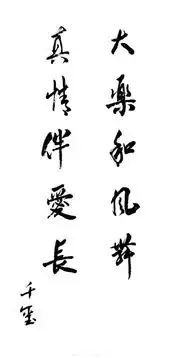 大樂和风
真情伴愛長
千玺